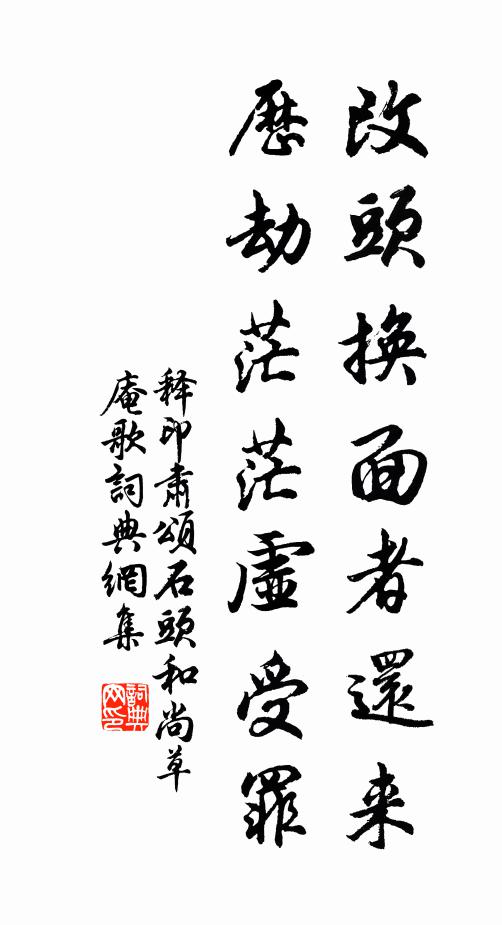 改頭換面者還来
歷劫茫茫虛受罪
释印肃頌石頭和尚草
庵歌詞典網集
詞典
网印